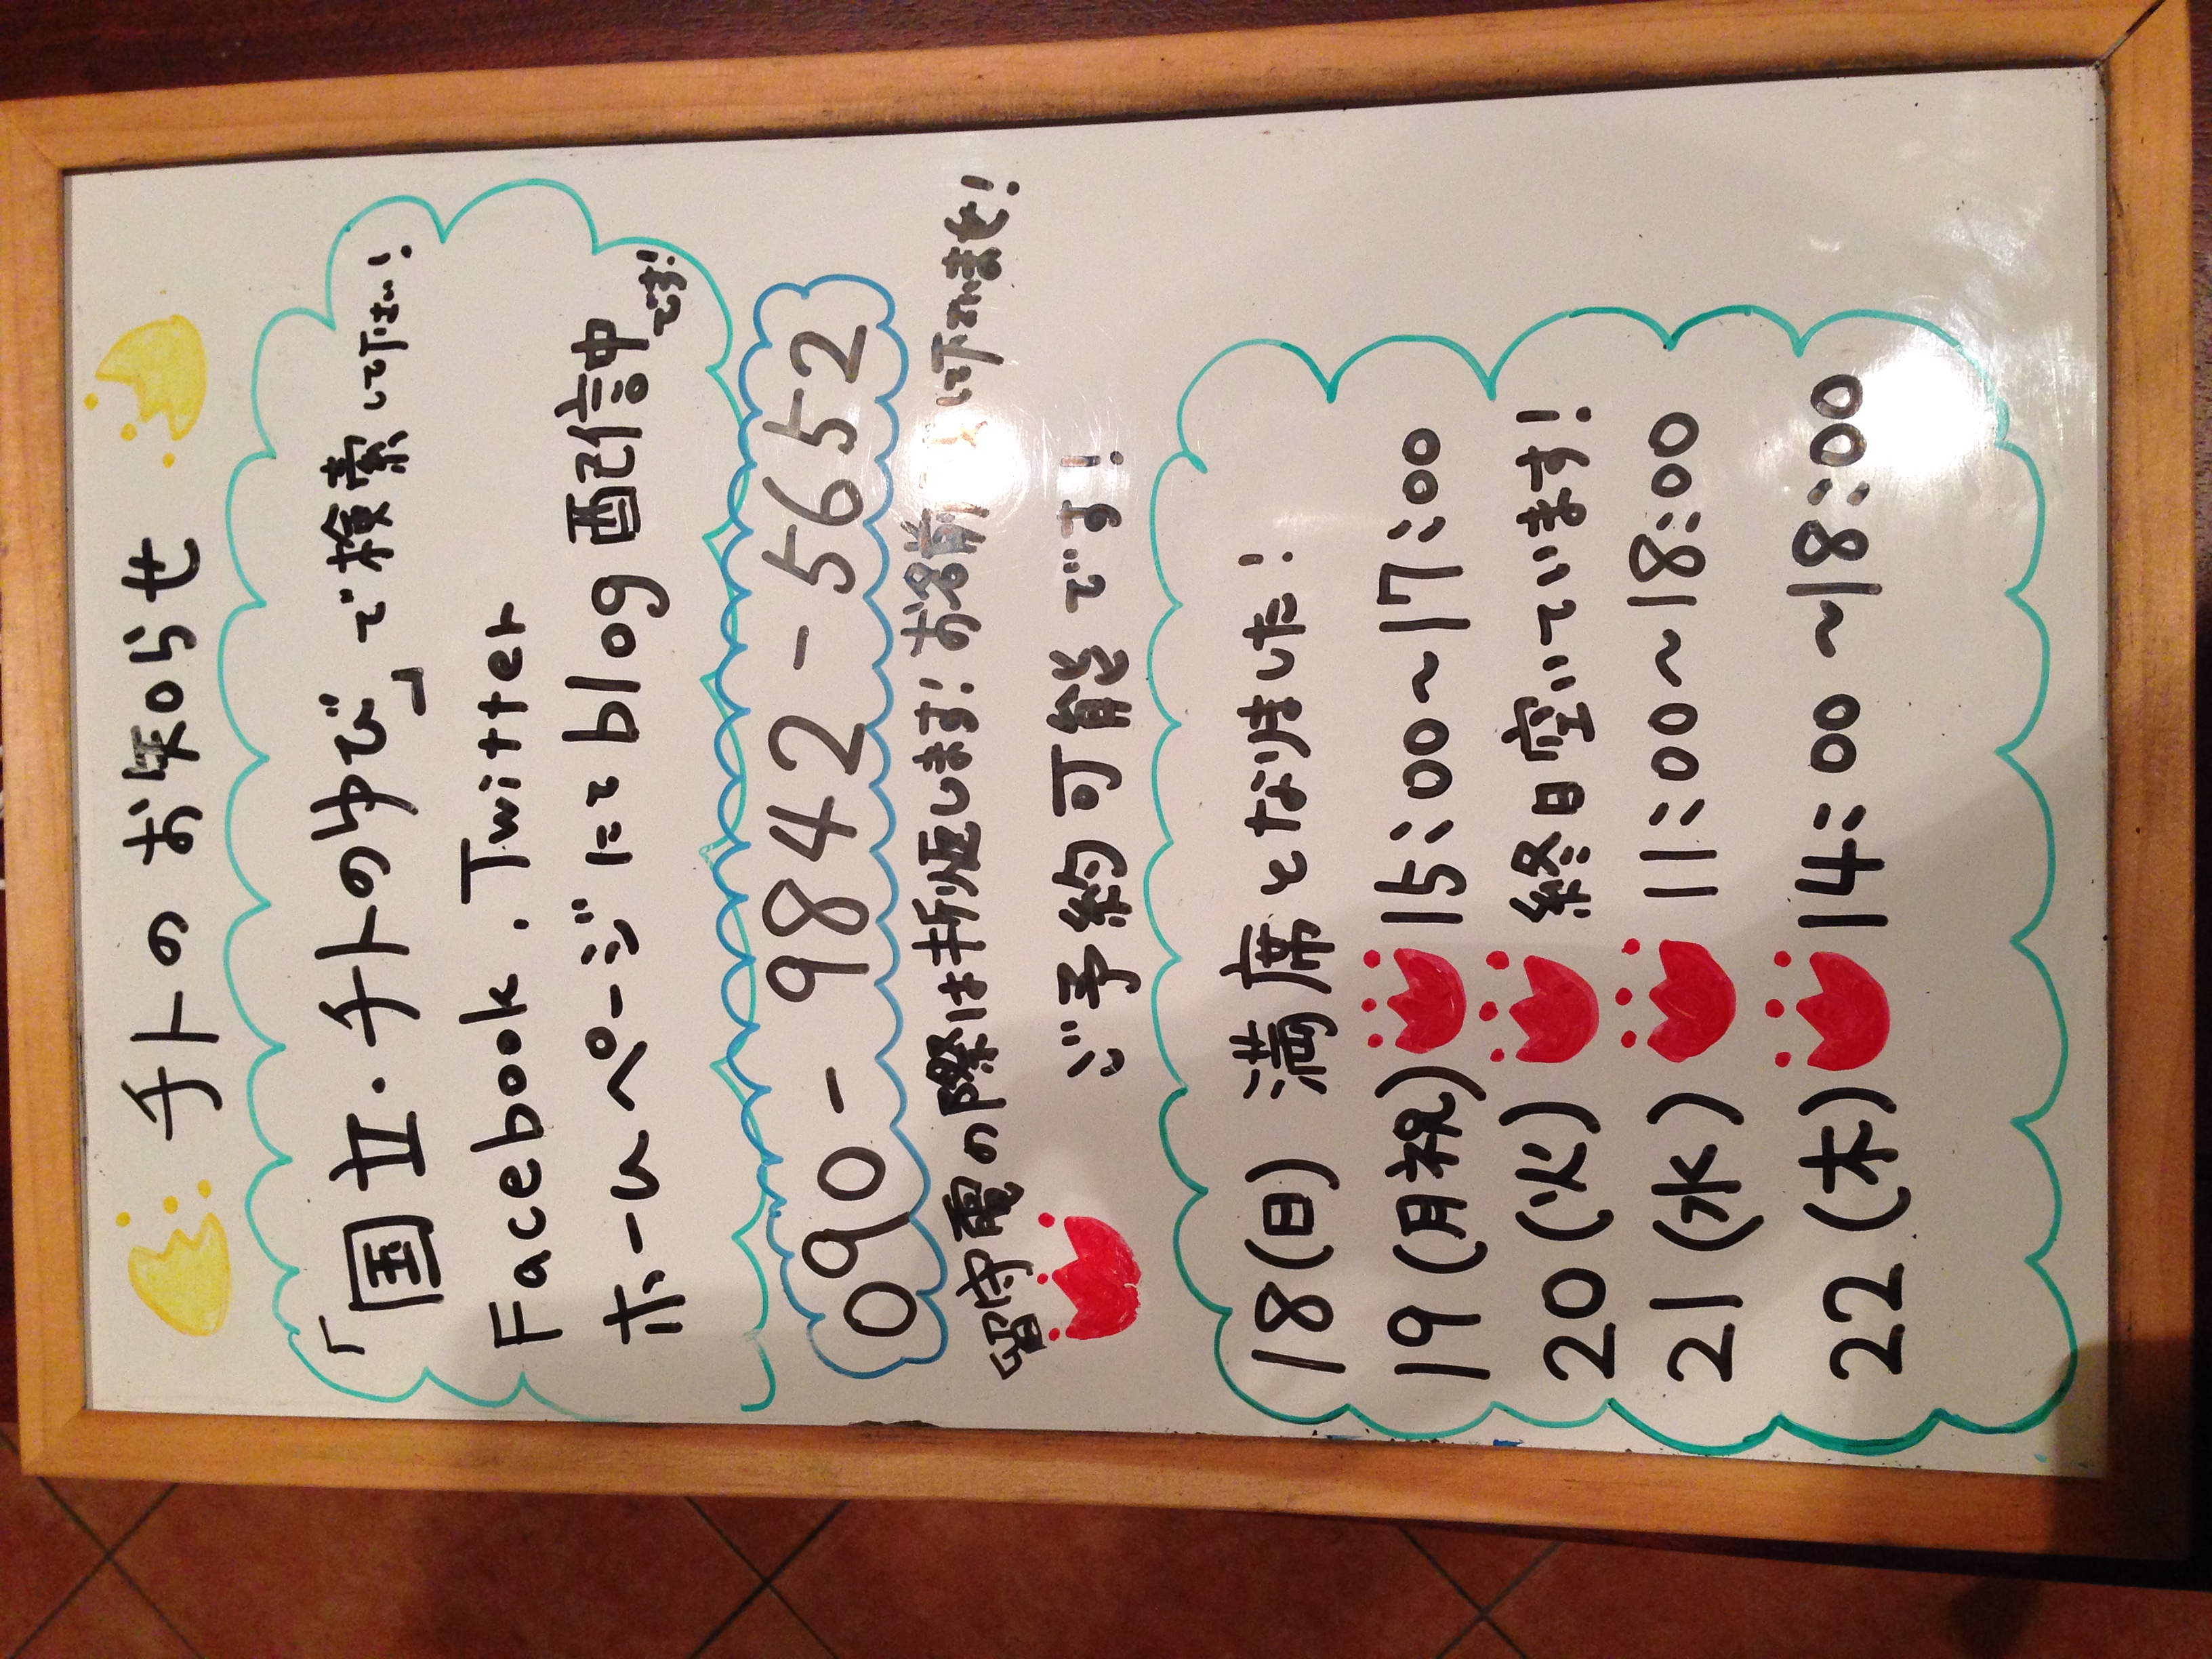 チトのお知らせ
「国立・チトのゆび」で検索して下さい!
Facebook.Twitter
ホームページにてblog配信中です!
090-9842-5652
留守電の際は折返します!お名前 して下さいませ!
ご予約可能です!
18(日) 満席となりました!
19(月祝) 15:00~17:00
20(火) 終日空いています!
21(水) 11:00~18:00
22(木) 14:00~18:00